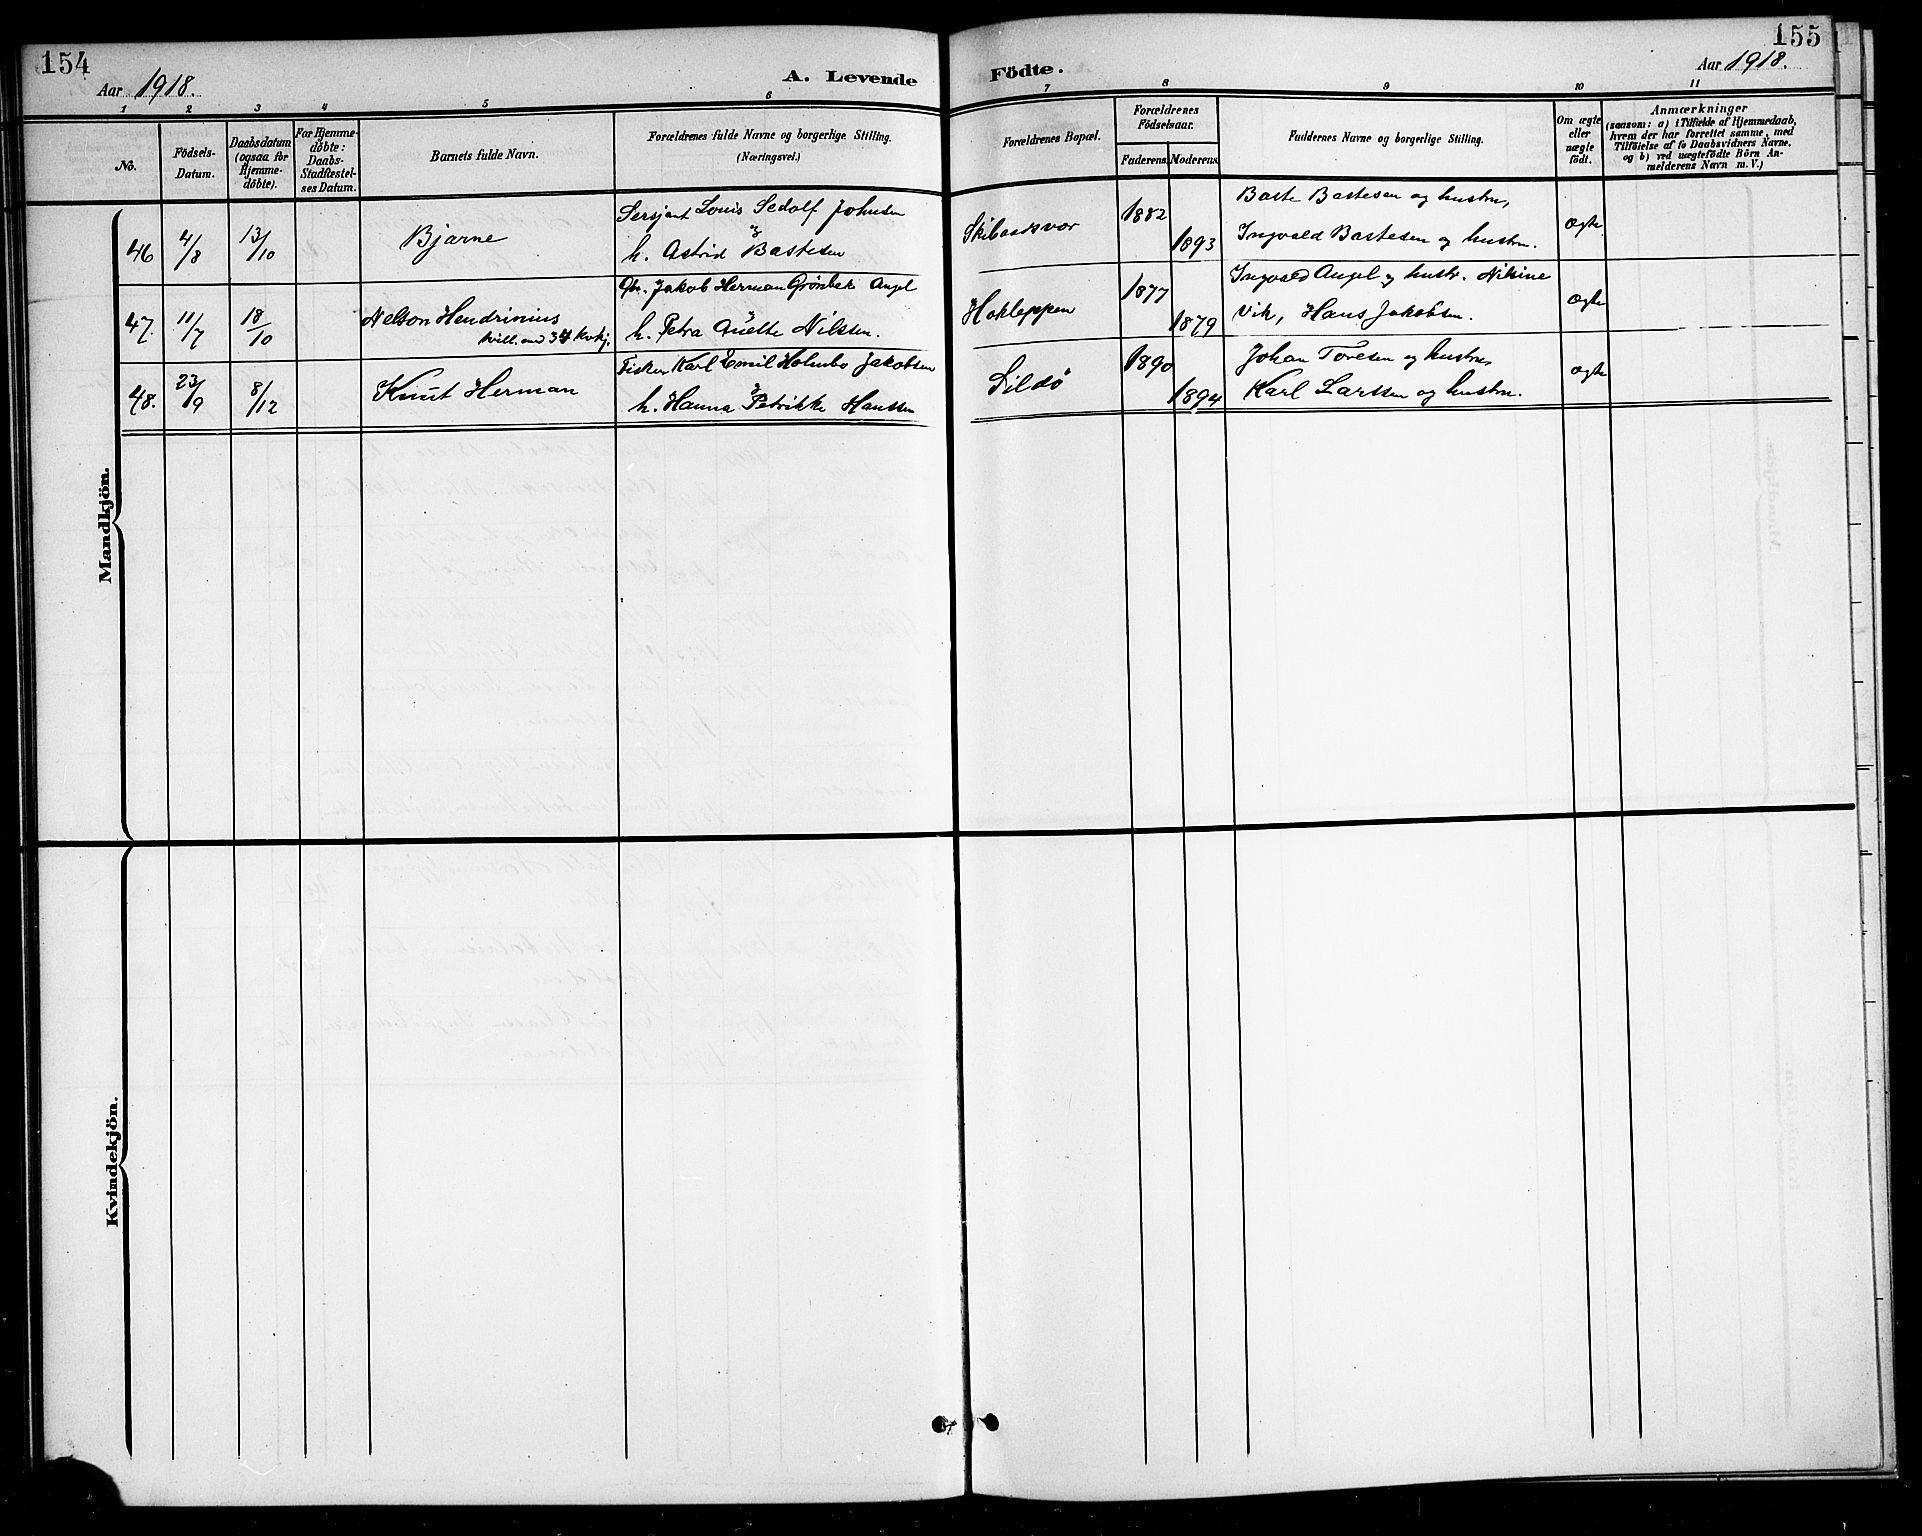 154
Aar 1918.
A. Levende
1 2 3 4 5 6
No.
Födsels-
Datum.
Daabsdatum
(ogsaa for
Hjemme-
döbte).
For Hjemme-
döbte:
Daabs-
Stadfæstel-
ses Datum.
Barnets fulde Navn.
Forældrenes fulde Navne og borgerlige Stilling.
(Næringsvei.)
Mandkjön.
46 4/8 13/10 Bjarne
Sersjant Louis Sedolf Johnsen
&
h. Astrid Bastesen
47. 11/7 18/10 Nelson Hendrinius
Jakob Herman Grönbek Angel
h. Petra Anette Nilssen.
48. 23/9 8/12 Knut Herman
Fisker Karl Emil Holmbo Jakobsen
&
h. Hanna Petrikke Hanssen
Kvindekjön.
155
Födte.
Aar 1918.
7 8 9 10 11
Forældrenes Bopæl.
Forældrenes
Födselsaar.
Faderens. Moderens.
Faddernes Navne og borgerlige Stilling.
Om ægte
eller
uægte
födt.
Anmærkninger
(saasom: a) i Tilfælde af Hjemmedaab,
hvem der har forrettet samme, med
Tilföielse af to Daabsvidners Navne.
og b) ved uægtefödte Börn An-
melderens Navn m. V.)
1882 1893
Baste Bastesen og hustru,
Ingvald Bastesen og hustru.
Ægte
Hokleppen 1877 1879
Ingvald Angel og hustr. Nikine
Vik, Hans Jakobsen.
Ægte
Sildö 1890 1894
Johan Toresen og hustru,
Karl Larssen og hustru.
ægte